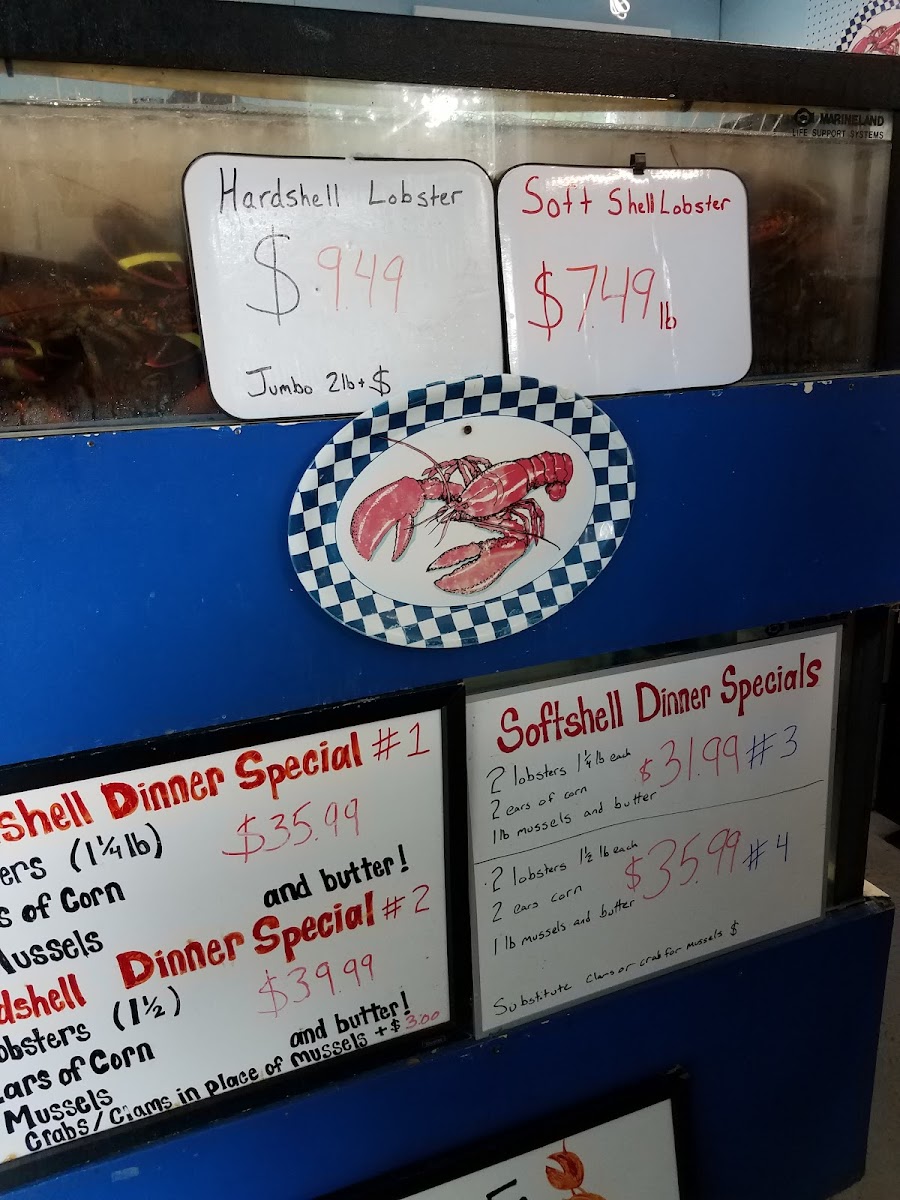 MARINELAND
LIFE SUPPORT SYSTEMS
Hardshell Lobster
$9.49
Jumbo 2lb+ $
Soft Shell Lobster
$7.49 lb
shell Dinner Special #1
ers (1 1/4 lb)
$35.99
s of Corn
and butter!
Mussels
dshell Dinner Special #2
obsters (1 1/2)
$39.99
ars of Corn
and butter!
Mussels
Crabs/Clams in place of mussels + $3.00
Softshell Dinner Specials
2 lobsters 1 1/4 lb each
$31.99 #3
2 ears of corn
1lb mussels and butter
2 lobsters 1 1/2 lb each
$35.99 #4
2 ears corn
1 lb mussels and butter
Substitute clams or crab for mussels $